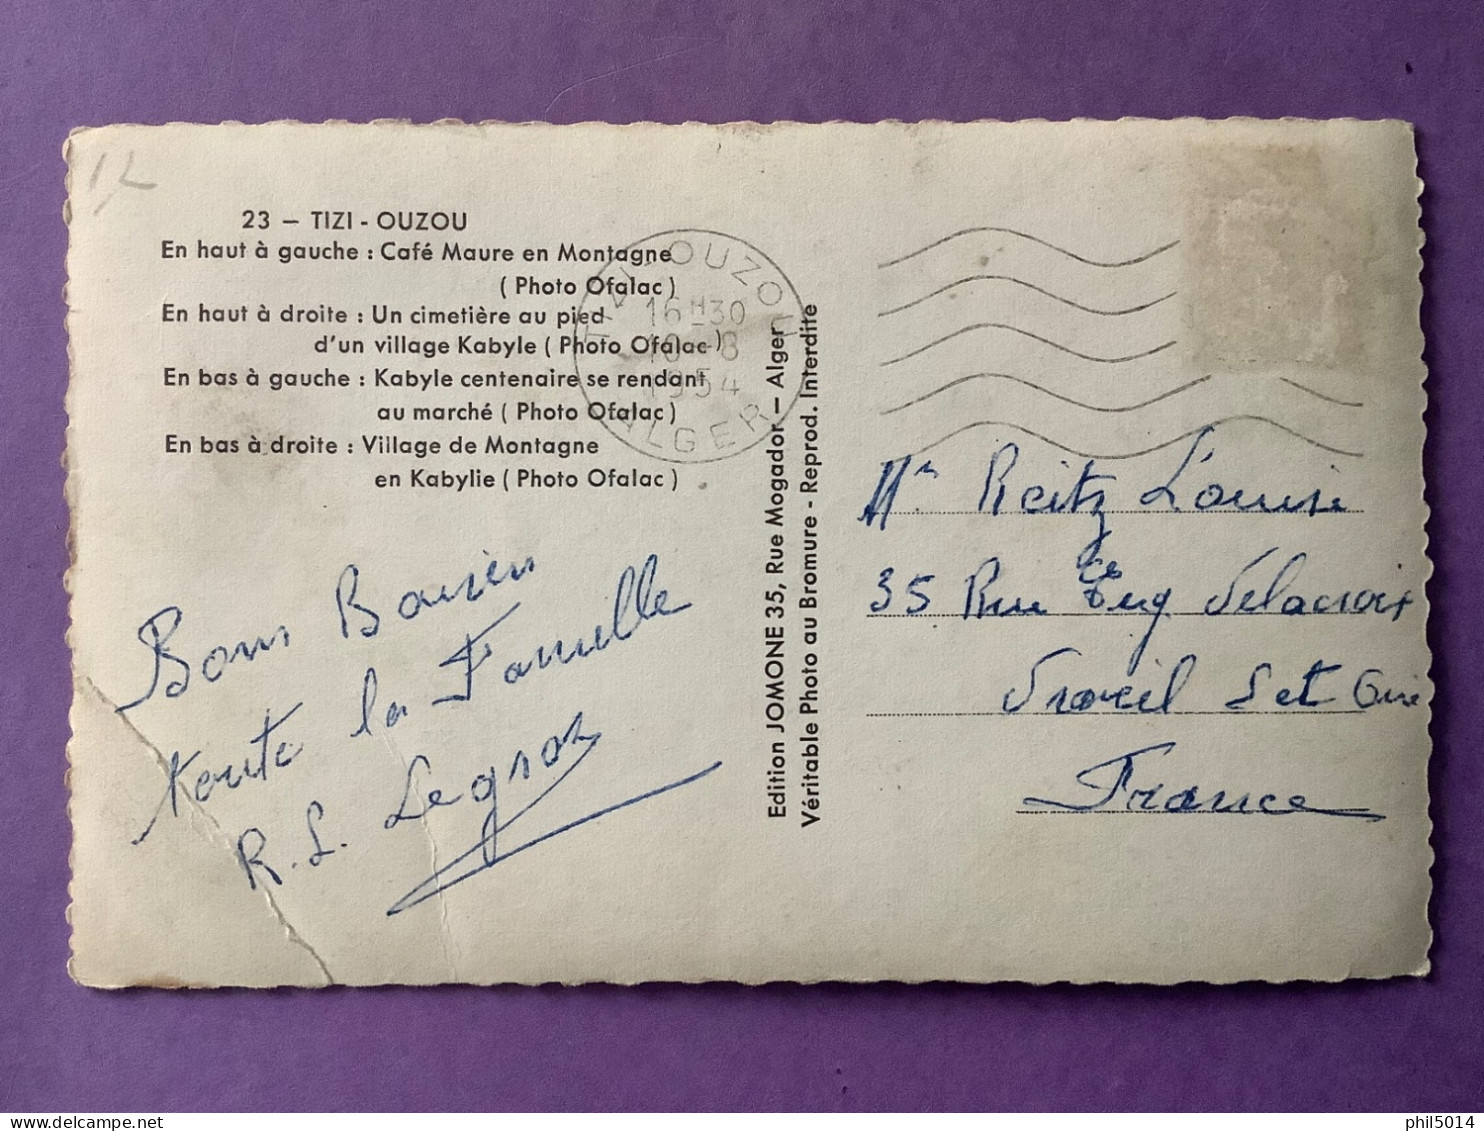 12
23 — TIZI - OUZOU
En haut à gauche : Café Maure en Montagne
( Photo Ofalac )
En haut à droite : Un cimetière au pied
d'un village Kabyle ( Photo Ofalac )
En bas à gauche : Kabyle centenaire se rendant
au marché ( Photo Ofalac )
En bas à droite : Village de Montagne
en Kabylie ( Photo Ofalac )
TIZI-OUZOU
16 H 30
10-8
1954
ALGER
Bons Baisers
toute la Famille
R. L. Legros
Edition JOMONE 35, Rue Mogador — Alger
Véritable Photo au Bromure - Reprod. Interdite
Reitz Louise
35 Rue Eug Delacroix
Draveil Set Oise
France
phil5014